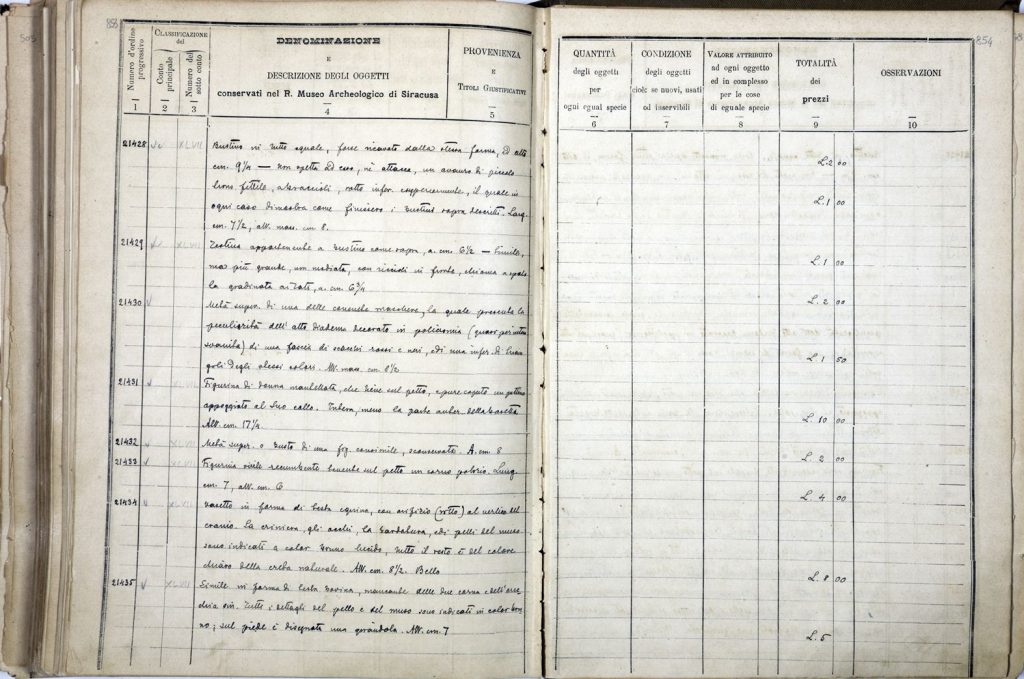 853
Numero d'ordine progressivo
CLASSIFICAZIONE del
Conto principale
Numero del sotto conto
DENOMINAZIONE
E
DESCRIZIONE DEGLI OGGETTI
conservati nel R. Museo Archeologico di Siracusa
PROVENIENZA
E
TITOLI GIUSTIFICATIVI
1 2 3 4 5
21428 XLVII Bustino in tutto eguale, forse ricavato dalla stessa forma, ed alto
cm. 9 1/4 — non spetta ad esso, nè attacca, un avanzo di piccolo
trono fittile, a braccioli, rotto infer. , il quale in
ogni caso dimostra come finissero i bustini sopra descritti. Larg.
cm. 7 1/2, alt. mass. cm. 8.
21429 XLVII Testina appartenente a bustino come sopra, a. cm. 6 1/2 — Simile,
ma più grande, con riccioli in fronte, chioma a
la gradinata ai lati, a. cm. 6 3/4
21430 Metà super. di una delle consuete maschere, la quale presenta la
peculiarità dell'alto diadema decorato in policromia (quasi per intero
svanita) di una fascia di scacchi rossi e neri, ed una infer. di trian
goli degli stessi colori. Alt. mass. cm. 8 1/2
21431 XLVII Figurina di donna mantellata, che tiene sul petto, e pure coperto un
appoggiato al suo collo. Intera, meno la parte anter. della
Alt. cm. 17 1/4.
21432 XLVII Metà super. o busto di una fig. consimile, A. cm. 8
21433 Figurina virile recumbente tenente sul petto un corno potorio. Lung.
cm. 7, alt. cm. 6
21434 XLVII Vasetto in forma di testa equina, con orifizio (rotto) al vertice del
cranio. La criniera, gli occhi, la bardatura, ed i pelli del muso
sono indicati a color bruno lucido, tutto il resto è del colore
chiaro della creta naturale. Alt. cm. 8 1/2. Bello
21435 XLVII Simile in forma di testa bovina, mancante delle due corna e dell'orec
chia sin. Tutti i dettagli del pello e del muso sono indicati in color bru
no; sul piede è disegnata una girandola. Alt. cm. 7
854
QUANTITÀ
degli oggetti
per
ogni egual specie
6
CONDIZIONE
degli oggetti
cioè: se nuovi, usati
od inservibili
7
VALORE ATTRIBUITO
ad ogni oggetto
ed in complesso
per le cose
di eguale specie
8
TOTALITÀ
dei
prezzi
9
OSSERVAZIONI
10
L. 2 00
L. 1 00
L. 1 00
L. 2 00
L. 1 50
L. 10 00
L. 2 00
L. 4 00
L. 8 00
L. 5